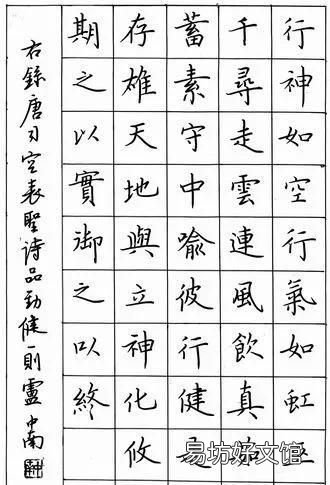 行神如空行氣如虹巫
千尋走雲連風飲真茹
蓄素守中喻彼行健是
存雄天地與立神化攸
期之以實御之以終
右錄唐司空表聖诗品劲健一則盧中南
易坊好文馆